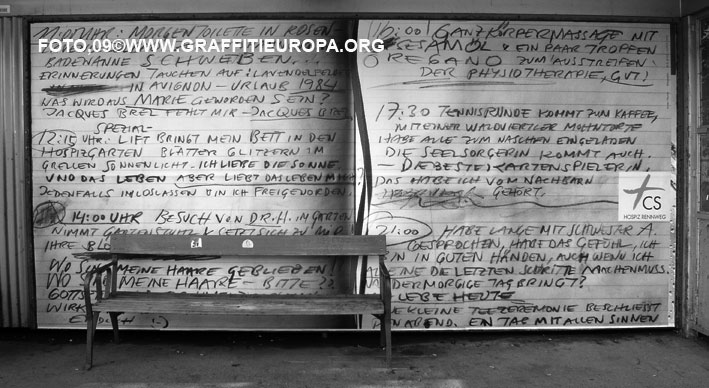 FOTO.09©WWW.GRAFFITIEUROPA.ORG
11:00 UHR: MORGENTOILETTE IN ROSEN
BADEWANNE SCHWEBEN...
ERINNERUNGEN TAUCHEN AUF: LAVENDELFELDER
IN AVIGNON - URLAUB 1984
WAS WIRD AUS MARIE GEWORDEN SEIN?
JACQUES BREL FEHLT MIR - JACQUES BREL
SPEZIAL-
12:15 UHR: LIFT BRINGT MEIN BETT IN DEN
HOSPIZGARTEN BLÄTTER GLITZERN IM
GRELLEN SONNENLICHT - ICH LIEBE DIE SONNE
UND DAS LEBEN ABER LIEBT DAS LEBEN MICH?
JEDENFALLS IM LOSLASSEN BIN ICH FREI GEWORDEN.
14:00 UHR BESUCH VON DR. H. IM GARTEN
NIMMT GARTENSTUHL & SETZT SICH ZU MIR
IHRE
WO SIND MEINE HAARE GEBLIEBEN!
WO MEINE HAARE - BITTE??
16:00! GANZKÖRPERMASSAGE MIT
SESAMÖL & EIN PAAR TROPFEN
OREGANO ZUM AUSSTREIFEN
DER PHYSIOTHERAPIE, GUT!
17:30 TENNISRUNDE KOMMT ZUM KAFFEE,
MIT EINER WALDVIERTLER MOHNTORTE
HABE ALLE ZUM NASCHEN EINGELADEN
DIE SEELSORGERIN KOMMT AUCH.
DIE BESTE KARTENSPIELERIN,
DAS HABE ICH VOM NACHBARN
GEHÖRT.
CS
HOSPIZ RENNWEG
21:00 HABE LANGE MIT SCHWESTER A.
GESPROCHEN, HABE DAS GEFÜHL, ICH
BIN IN GUTEN HÄNDEN, AUCH WENN ICH
ALLEINE DIE LETZTEN SCHRITTE MACHEN MUSS.
WAS DER MORGIGE TAG BRINGT?
ICH LEBE HEUTE
EINE KLEINE TEEZEREMONIE BESCHLIESST
DEN ABEND. EIN TAG MIT ALLEN SINNEN